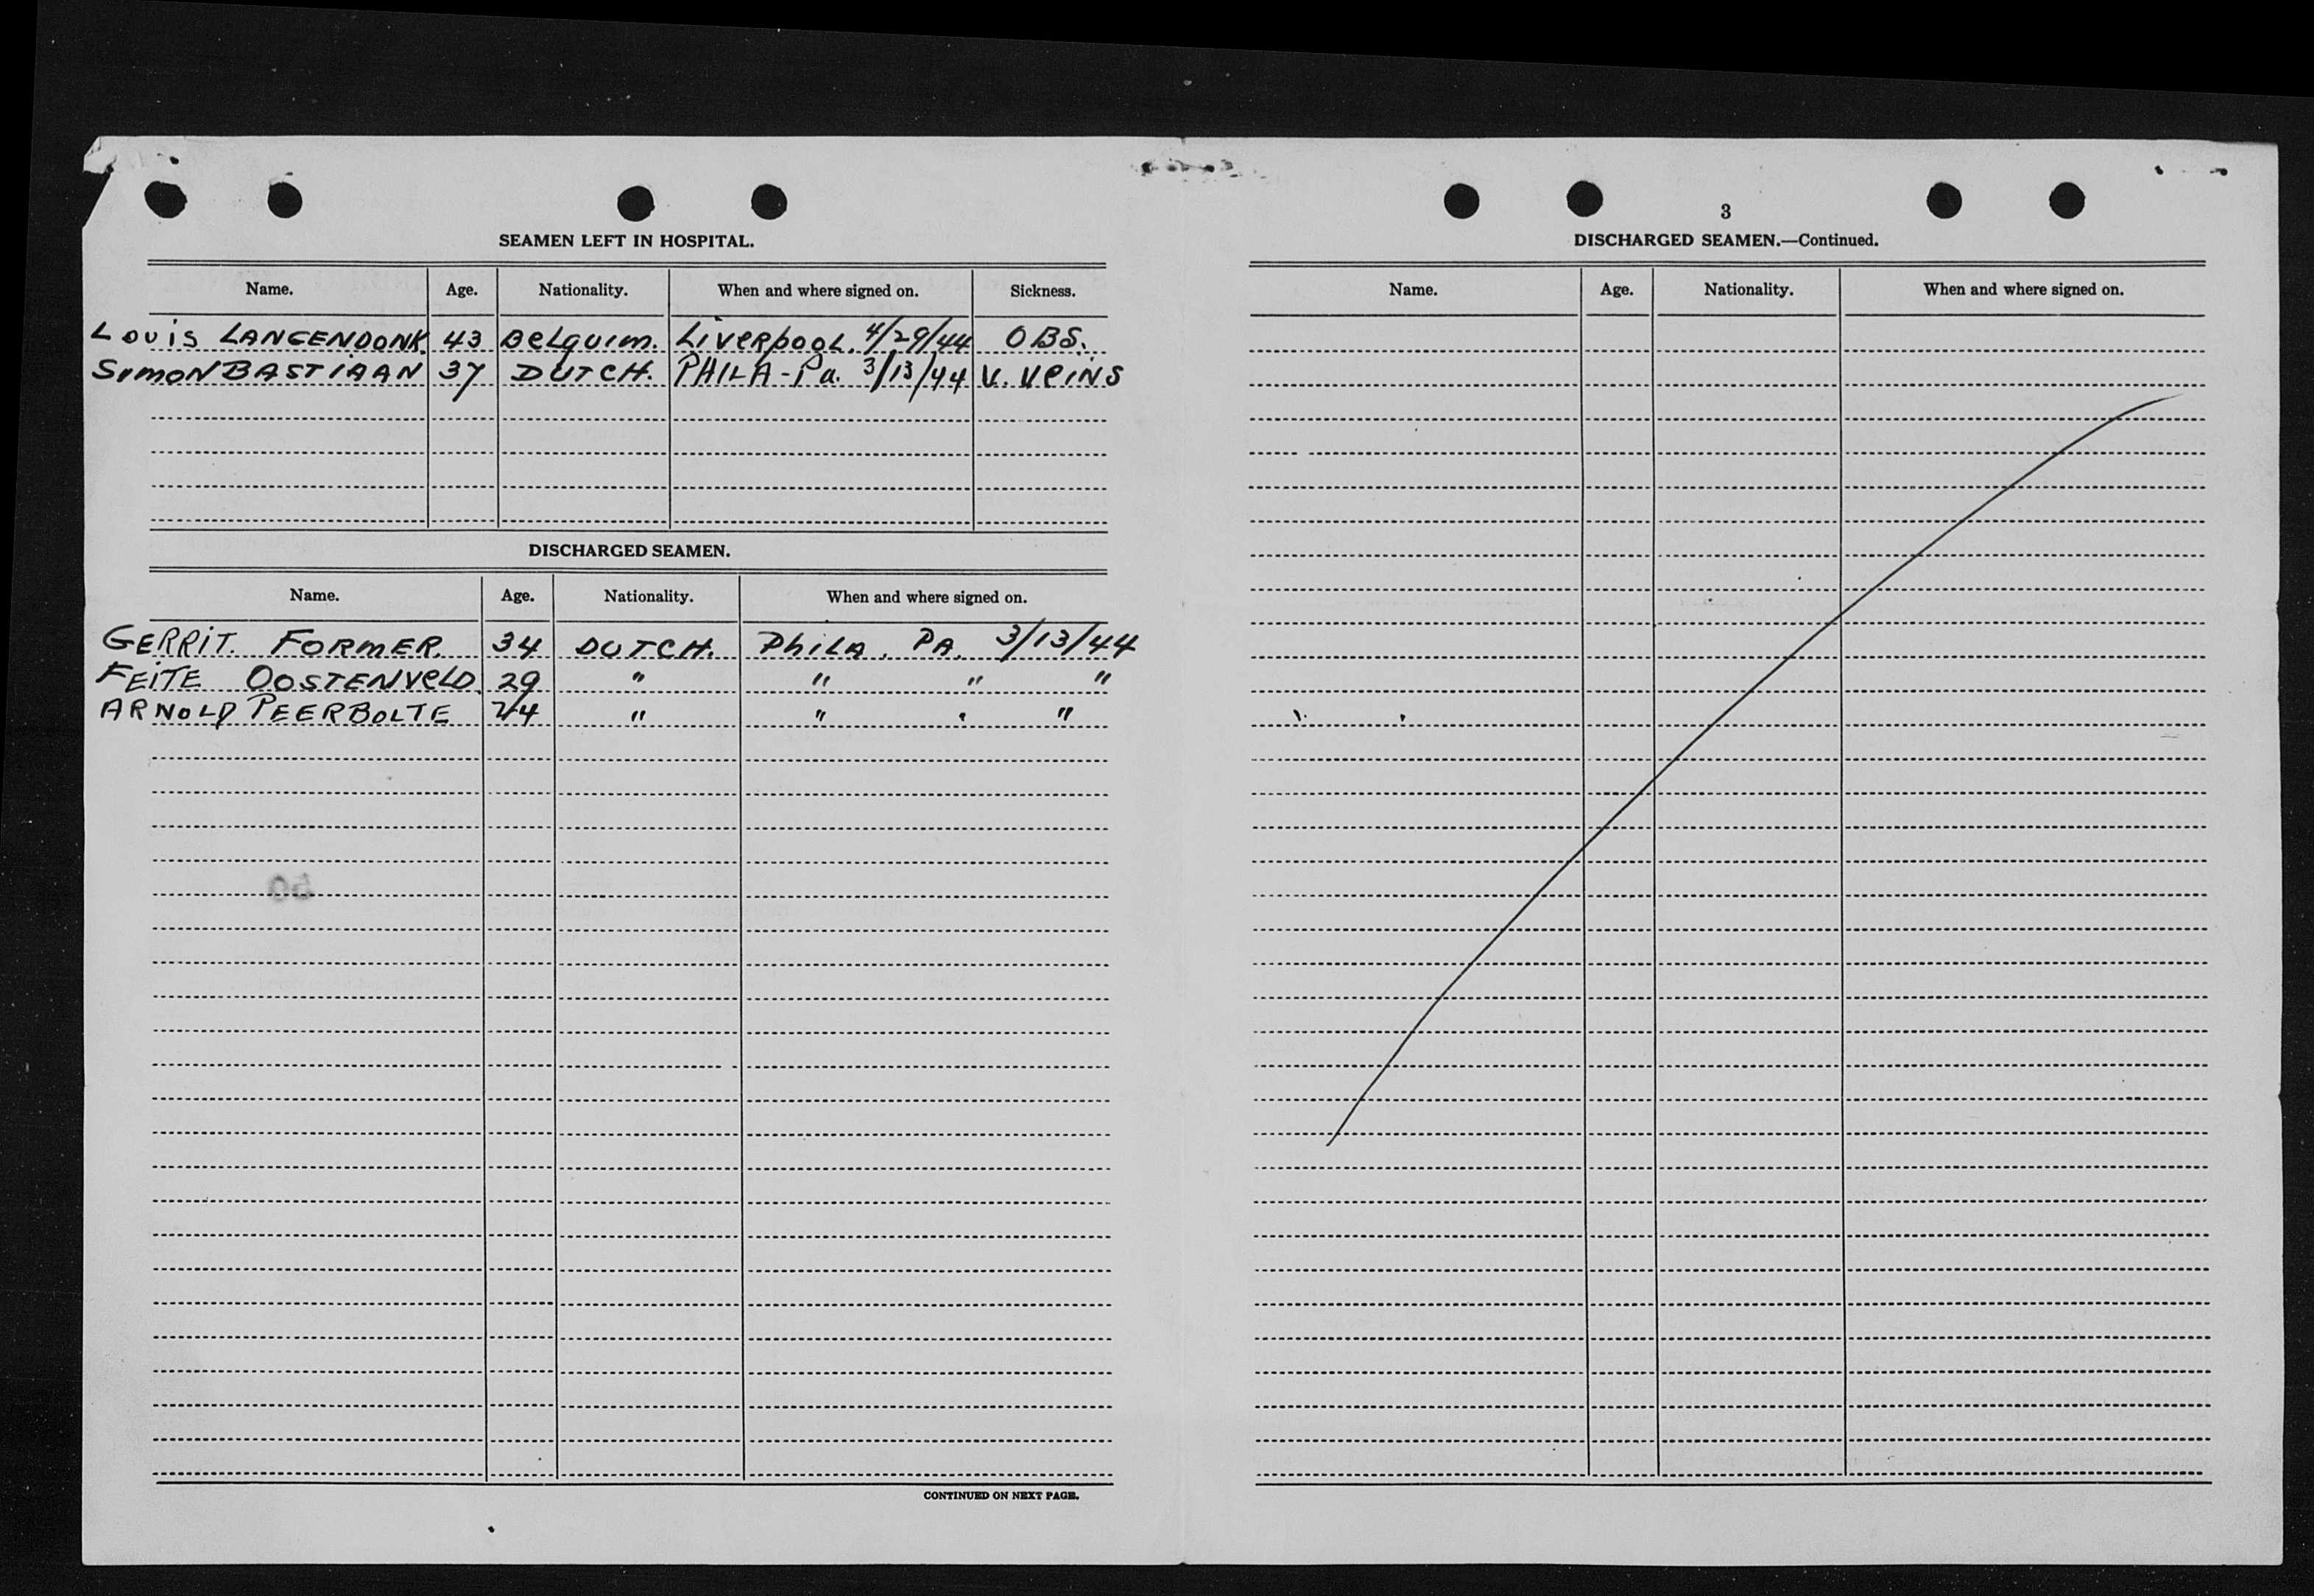 SEAMEN LEFT IN HOSPITAL.
Name. Age. Nationality. When and where signed on. Sickness.
Louis LANGENDONK. 43 Belguim. Liverpool. 4/29/44 OBS.
Simon BASTIAAN 37 DUTCH. PHILA-Pa. 3/13/44 V. Veins
DISCHARGED SEAMEN.
Name. Age. Nationality. When and where signed on.
GERRIT. FORMER. 34 DUTCH. Phila. PA. 3/13/44
FEITE OOSTENVELD. 29 " " " "
ARNOLD PEERBOLTE 24 " " " "
50
CONTINUED ON NEXT PAGE.
3
DISCHARGED SEAMEN.—Continued.
Name. Age. Nationality. When and where signed on.